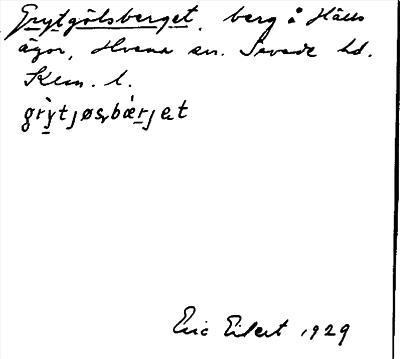 Grytgölsberget. berg å Hälls
ägor, Hvena sn. Sevede hd.
Klm. l.
grỳtjøsbærjet
Eric Eilert 1929